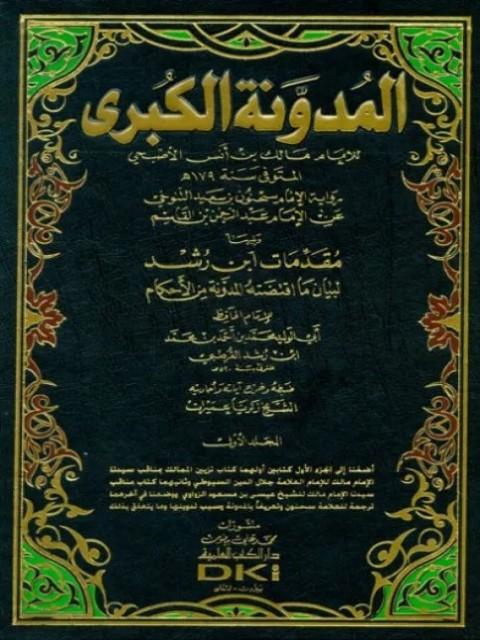 المُدوَّنة الكُبرى
للإمام مالك بن أنس الأصبحي
المتوفى سنة ١٧٩هـ
رواية الإمام سحنون بن سعيد التنوخي
عن الإمام عبد الرحمن بن القاسم
ويليها
مُقدّمات ابن رُشد
لبيان ما اقتضته المدوّنة من الأحكام
للإمام الحافظ
أبي الوليد محمد بن أحمد بن محمد
ابن رشد القرطبي
ضبطه وخرّج آياته وأحاديثه
الشيخ زكريا عميرات
المجلد الأول
أضفنا إلى الجزء الأول كتابين أولهما كتاب تزيين الممالك بمناقب سيدنا
الإمام مالك للإمام العلامة جلال الدين السيوطي وثانيهما كتاب مناقب
سيدنا الإمام مالك للشيخ عيسى بن مسعود الزواوي ووضعنا في آخرهما
ترجمة للعلامة سحنون وتعريفاً بالمدونة وسبب تدوينها وما يتعلق بذلك
منشورات
محمد علي بيضون
دار الكتب العلمية
DKi
بيروت - لبنان